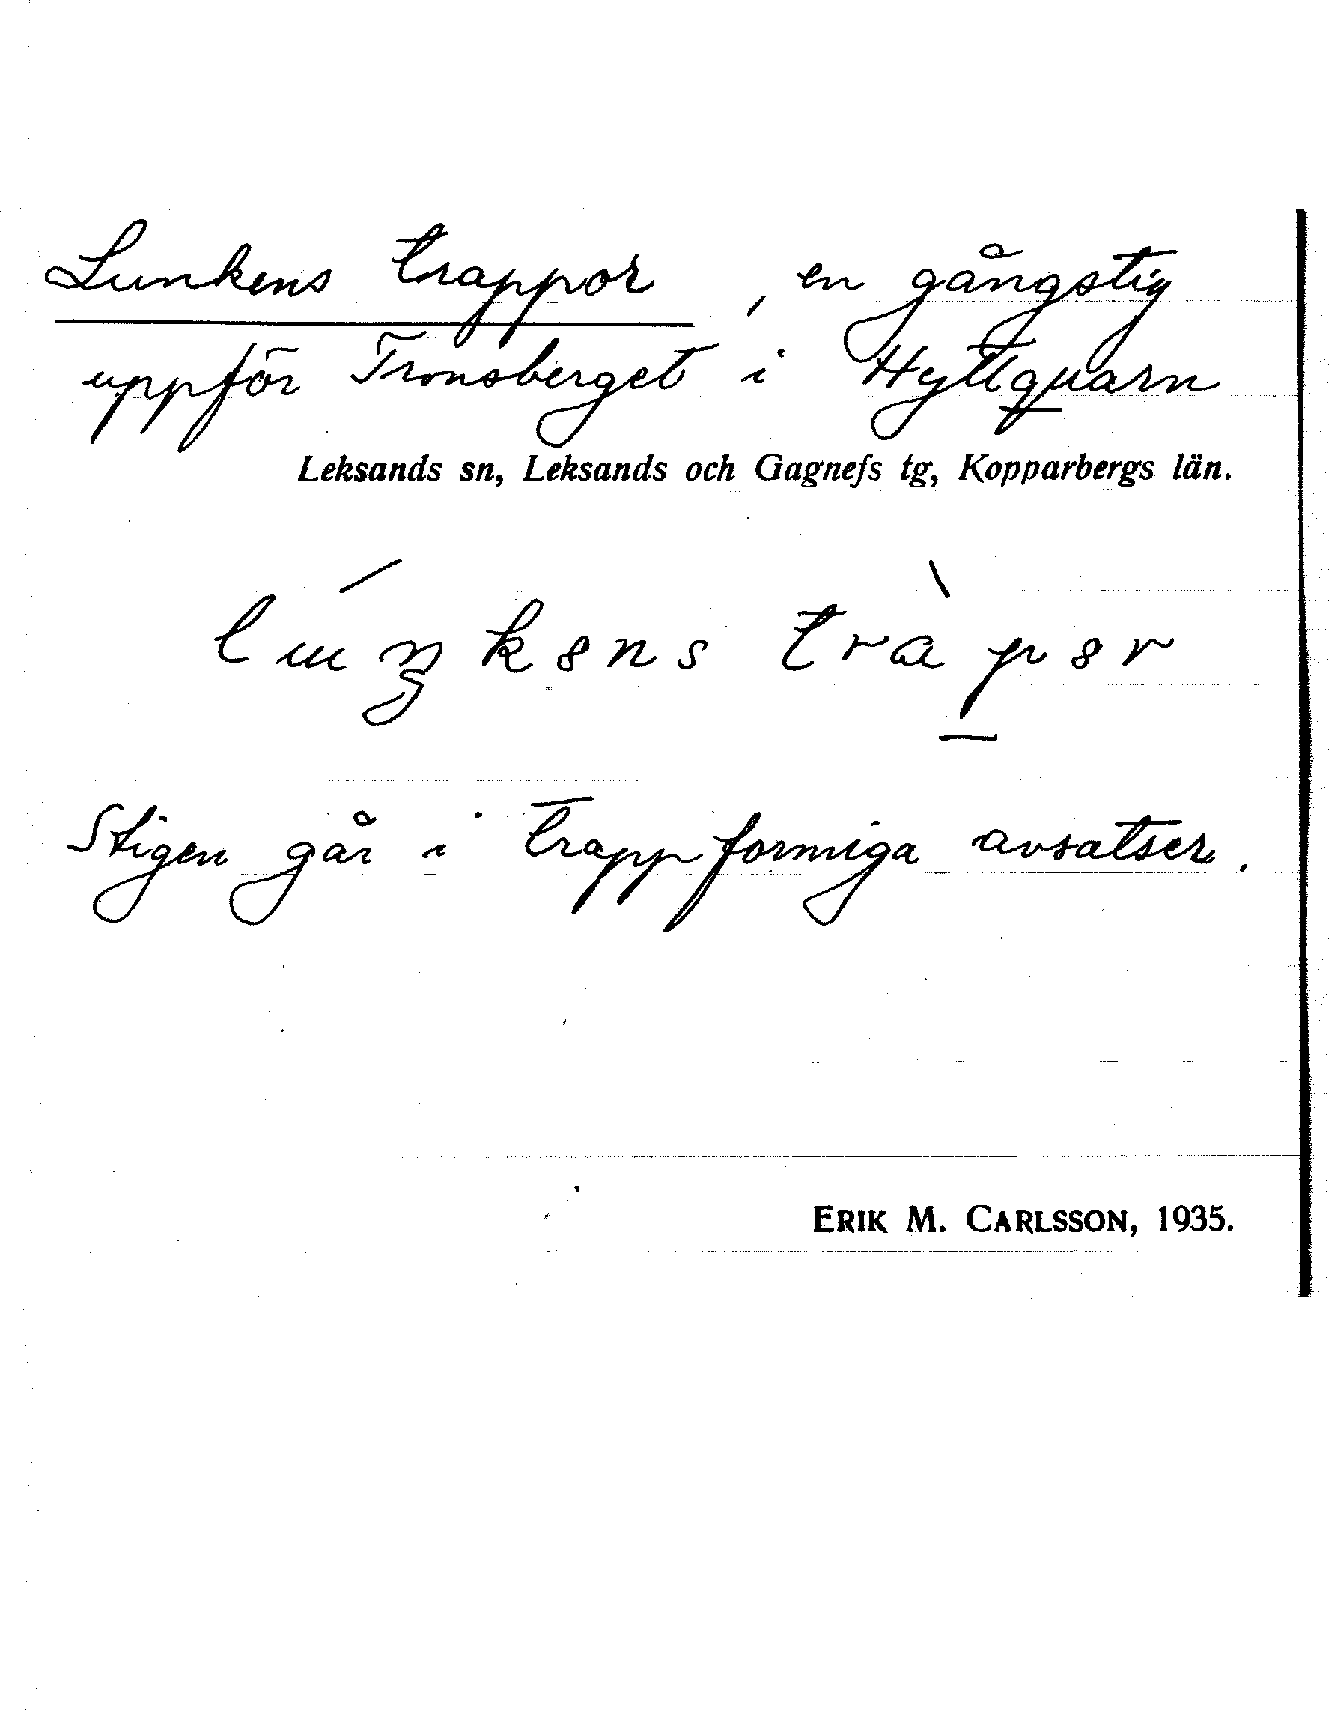 Lunkens trappor, en gångstig
uppför Tronsberget i Hyttquarn
Leksands sn, Leksands och Gagnefs tg, Kopparbergs län.
Stigen går i trappformiga avsatser.
ERIK M. CARLSSON, 1935.